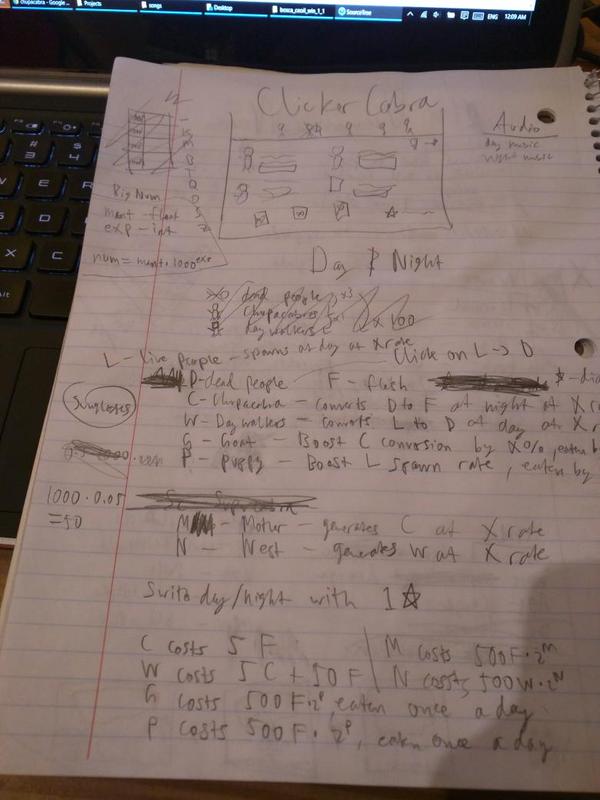 chupacabra - Google ...
Projects
songs
Desktop
bosca_ceoil_win_1_1
SourceTree
ENG
12:09 AM
Clicker Cobra
Audio
day music
night music
K
M
B
T
Q
BigNum
mant - float
exp - int
num = mant * 1000^exp
Day & Night
dead people
chupacabras
day walkers
x 100
L - live people - spawns at day at X rate
Click on L -> D
D - dead people
F - flesh
Sunglasses
C - Chupacabra - converts D to F at night at X ra
W - Day walkers - converts L to D at day at X r
G - Goat - Boost C conversion by X%, eaten b
P - puppy - Boost L spawn rate, eaten by
1000 · 0.05
= 50
M - Mother - generates C at X rate
N - Nest - generates W at X rate
Switch day/night with 1 ☆
C costs 5 F
M costs 500F · 2^M
W costs 5 C + 50 F
N costs 500W · 2^N
G costs 500F · 2^P, eaten once a day
P costs 500F · 2^P, eaten once a day